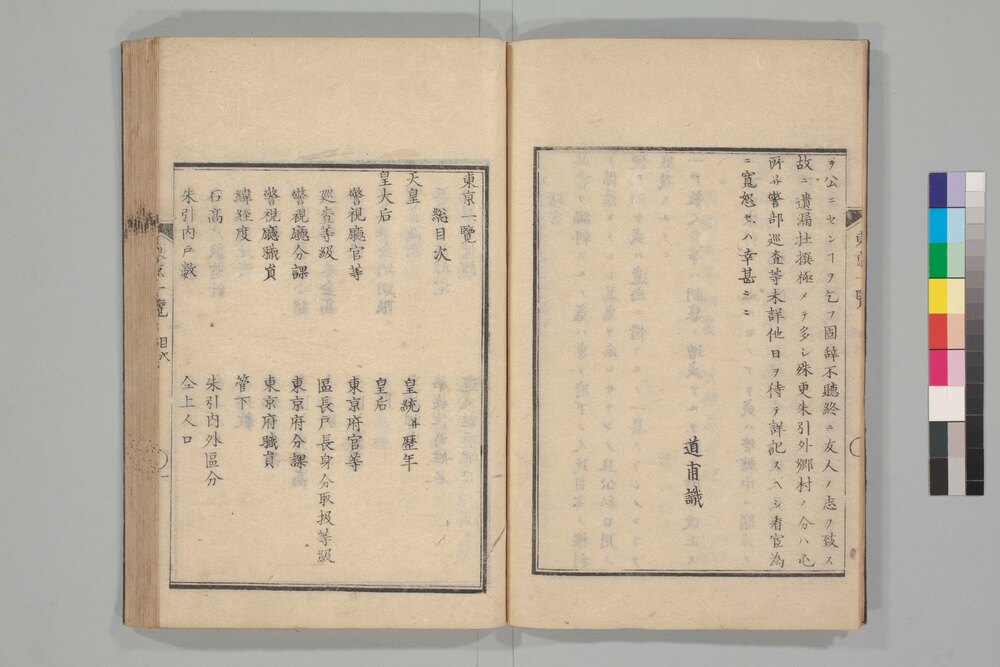 ヲ公ニセンヿヲ乞フ固辞不聽終ニ友人ノ志ヲ致ス
故ニ遺漏杜撰極メテ多シ殊更朱引外郷村ノ分ハ屯
所并警部巡査等未詳他日ヲ待テ詳記スヘシ看官為
ニ寛恕セハ幸甚ニニ
道甫識
東京一覧
総目次
天皇
皇統并歴年
皇大后
皇后
警視廳官等
東京府官等
巡査等級
區長戸長身分取扱等級
警視廳分課
東京府分課
警視廳職員
東京府職員
緯経度
管下
石高
朱引内外區分
朱引内戸數
仝上人口